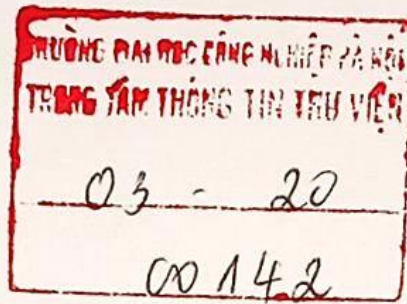 TRƯỜNG ĐẠI HỌC CÔNG NGHIỆP HÀ NỘI
TRUNG TÂM THÔNG TIN THƯ VIỆN
03 - 20
00142